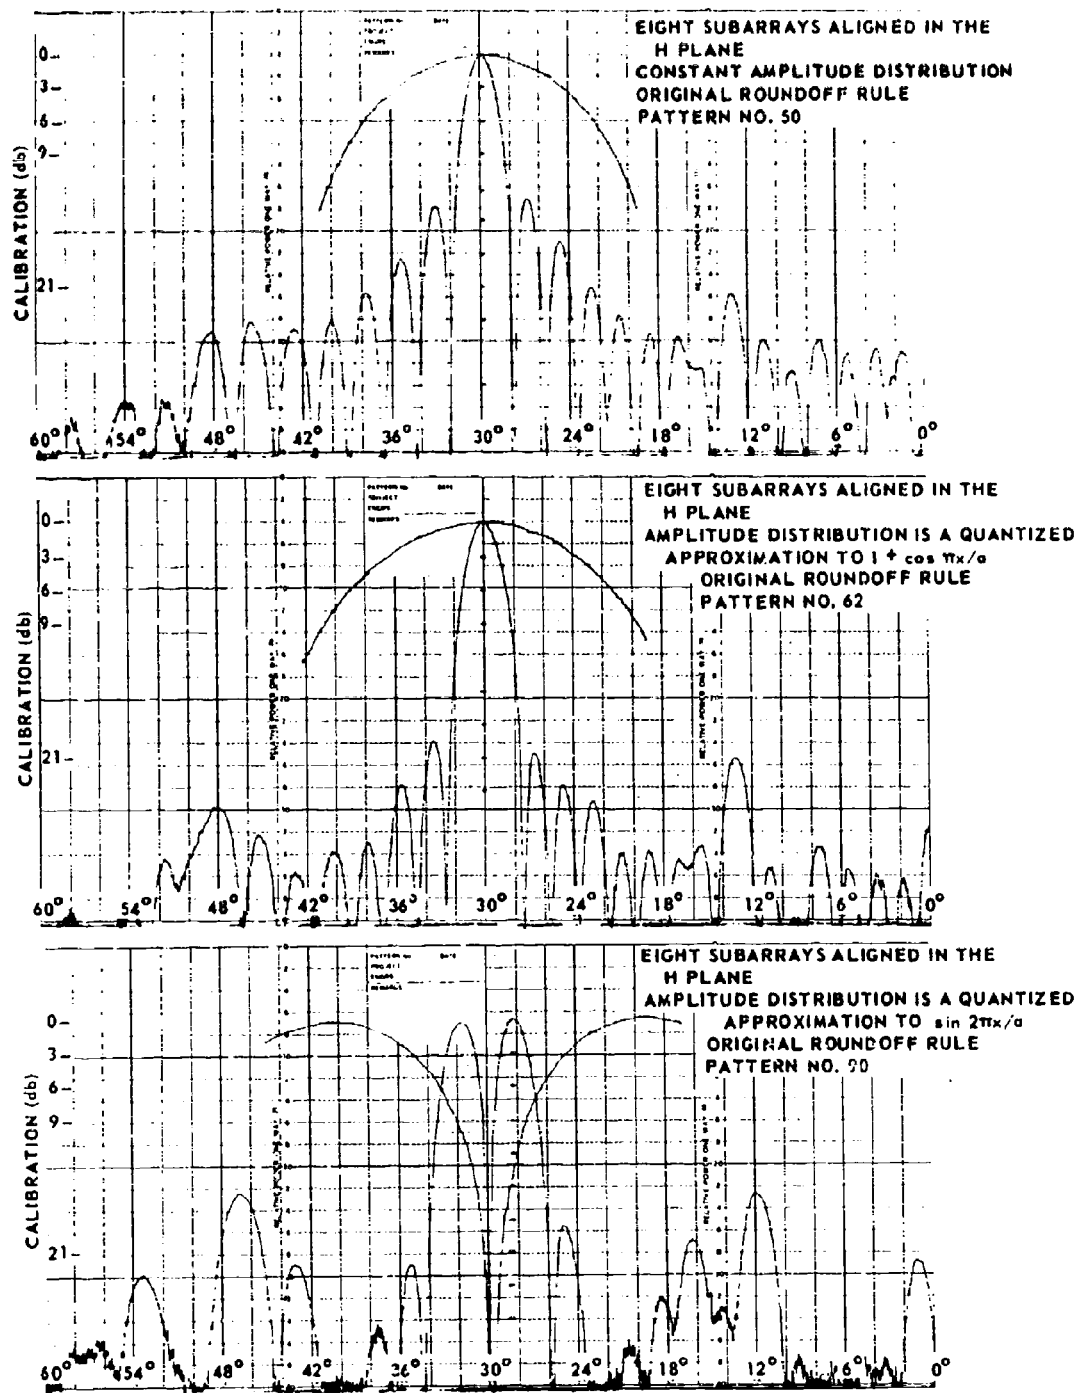 EIGHT SUBARRAYS ALIGNED IN THE
H PLANE
CONSTANT AMPLITUDE DISTRIBUTION
ORIGINAL ROUNDOFF RULE
PATTERN NO. 50
CALIBRATION (db)
0
3
6
9
21
RELATIVE POWER ONE WAY
RELATIVE POWER ONE WAY
60° 54° 48° 42° 36° 30° 24° 18° 12° 6° 0°
EIGHT SUBARRAYS ALIGNED IN THE
H PLANE
AMPLITUDE DISTRIBUTION IS A QUANTIZED
APPROXIMATION TO 1 + cos πx/a
ORIGINAL ROUNDOFF RULE
PATTERN NO. 62
CALIBRATION (db)
0
3
6
9
21
RELATIVE POWER ONE WAY
RELATIVE POWER ONE WAY
60° 54° 48° 42° 36° 30° 24° 18° 12° 6° 0°
EIGHT SUBARRAYS ALIGNED IN THE
H PLANE
AMPLITUDE DISTRIBUTION IS A QUANTIZED
APPROXIMATION TO sin 2πx/a
ORIGINAL ROUNDOFF RULE
PATTERN NO.
CALIBRATION (db)
0
3
6
9
21
RELATIVE POWER ONE WAY
RELATIVE POWER ONE WAY
60° 54° 48° 42° 36° 30° 24° 18° 12° 6° 0°